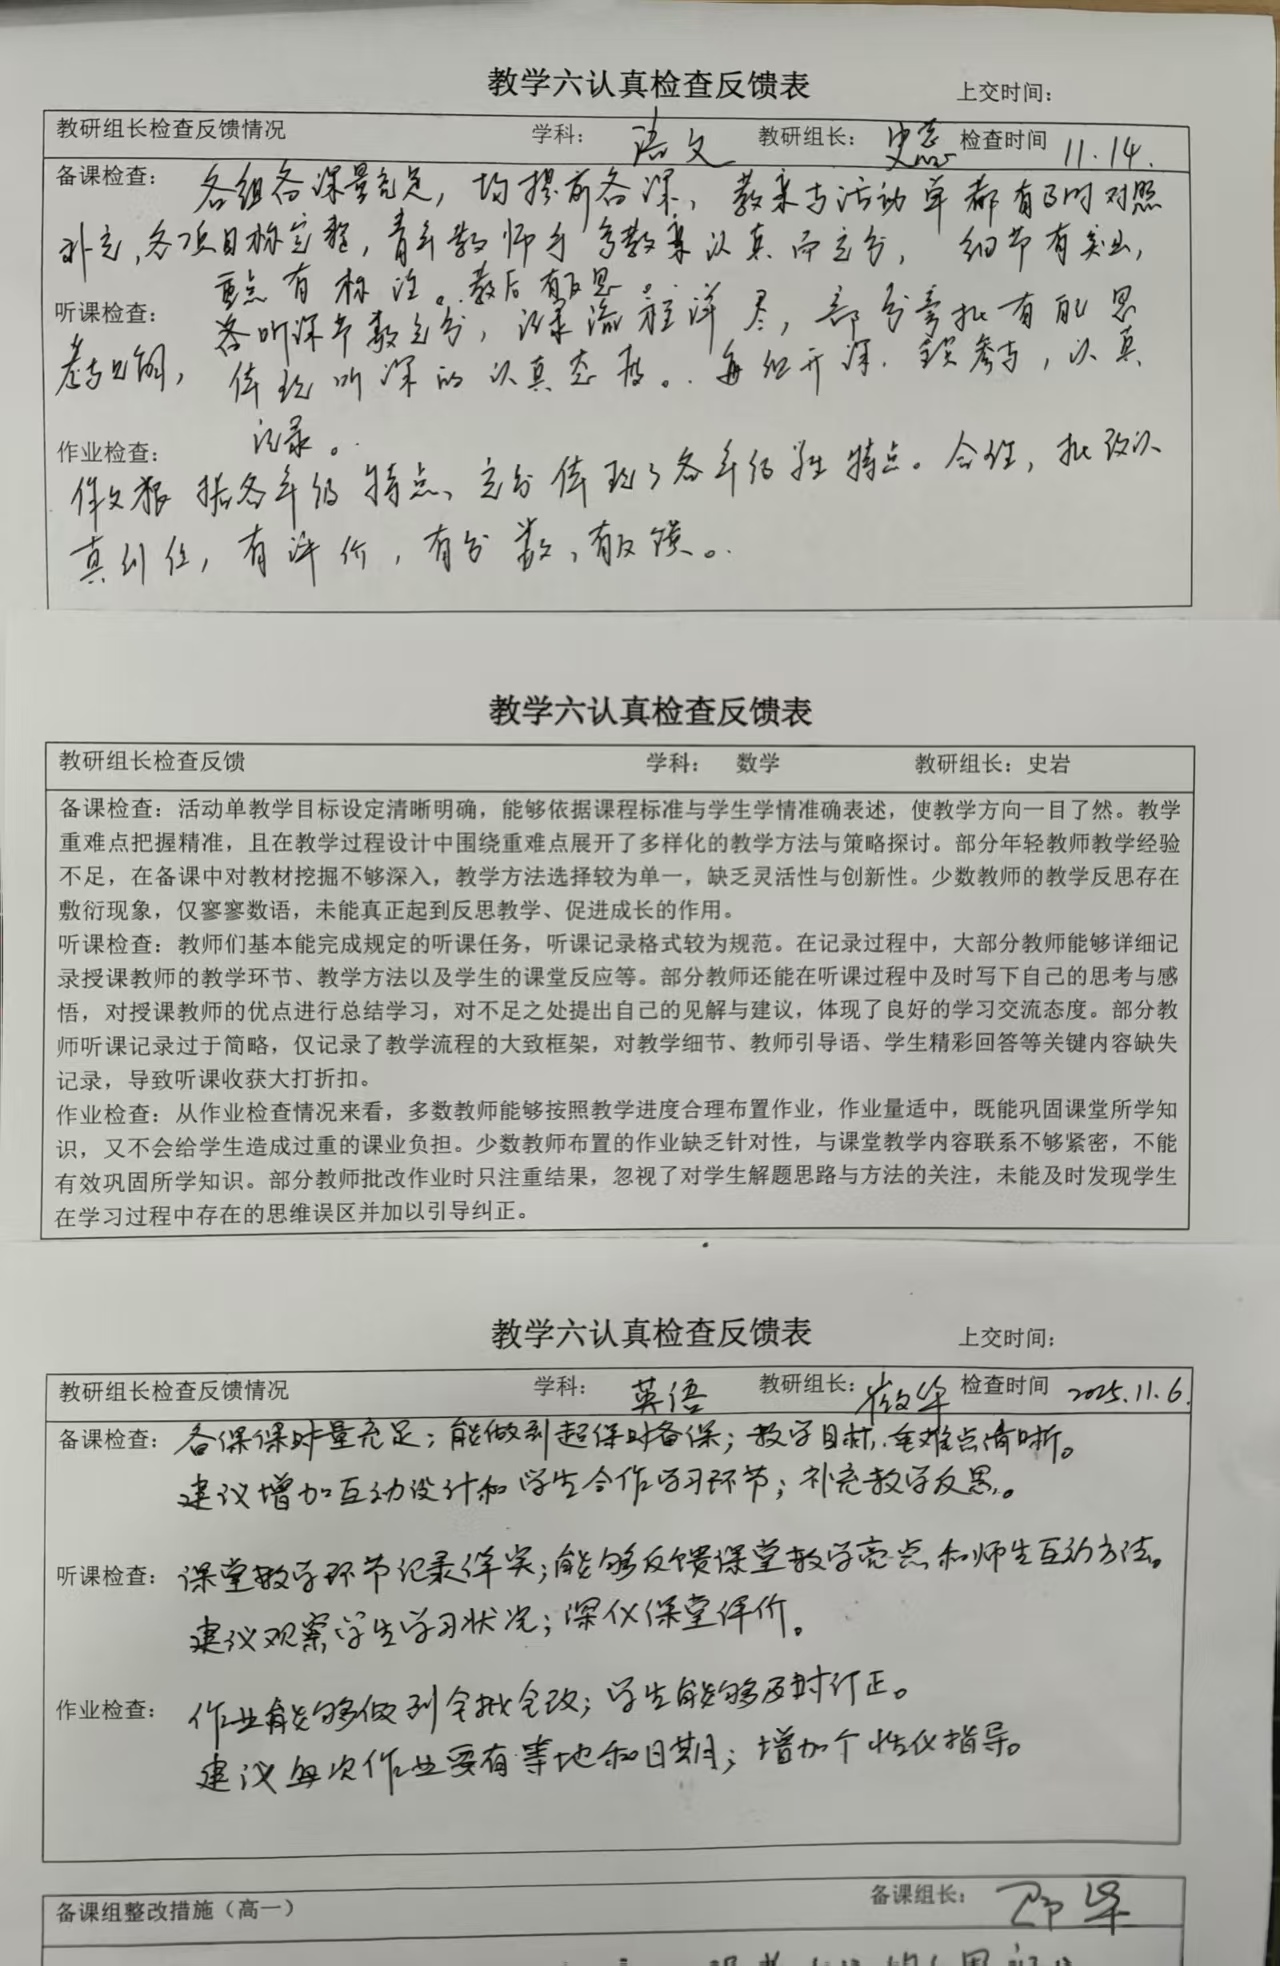 教学六认真检查反馈表 上交时间：
教研组长检查反馈情况 学科： 语文 教研组长： 检查时间 11.14.
备课检查： 各组备课量充足，均提前备课，教案与活动单都有及时对照
补充，各项目标完整，青年教师手写教案认真而充分，细节有突出，
重点有标注。教后有反思。
听课检查： 各听课节数充分，记录流程详尽，部分旁批有的思
考与见解，体现听课的认真态度。每组开课，全员参与，认真
记录。
作业检查：
作文根据各年级特点、充分体现了各年级学生特点。合理，批改认
真到位，有评价，有分数，有反馈。
教学六认真检查反馈表
教研组长检查反馈 学科： 数学 教研组长：史岩
备课检查：活动单教学目标设定清晰明确，能够依据课程标准与学生学情准确表述，使教学方向一目了然。教学
重难点把握精准，且在教学过程设计中围绕重难点展开了多样化的教学方法与策略探讨。部分年轻教师教学经验
不足，在备课中对教材挖掘不够深入，教学方法选择较为单一，缺乏灵活性与创新性。少数教师的教学反思存在
敷衍现象，仅寥寥数语，未能真正起到反思教学、促进成长的作用。
听课检查：教师们基本能完成规定的听课任务，听课记录格式较为规范。在记录过程中，大部分教师能够详细记
录授课教师的教学环节、教学方法以及学生的课堂反应等。部分教师还能在听课过程中及时写下自己的思考与感
悟，对授课教师的优点进行总结学习，对不足之处提出自己的见解与建议，体现了良好的学习交流态度。部分教
师听课记录过于简略，仅记录了教学流程的大致框架，对教学细节、教师引导语、学生精彩回答等关键内容缺失
记录，导致听课收获大打折扣。
作业检查：从作业检查情况来看，多数教师能够按照教学进度合理布置作业，作业量适中，既能巩固课堂所学知
识，又不会给学生造成过重的课业负担。少数教师布置的作业缺乏针对性，与课堂教学内容联系不够紧密，不能
有效巩固所学知识。部分教师批改作业时只注重结果，忽视了对学生解题思路与方法的关注，未能及时发现学生
在学习过程中存在的思维误区并加以引导纠正。
教学六认真检查反馈表 上交时间：
教研组长检查反馈情况 学科： 英语 教研组长： 检查时间 2025.11.6.
备课检查： 备课课时量充足；能做到超课时备课；教学目标、重难点清晰。
建议增加互动设计和学生合作学习环节；补充教学反思。
听课检查： 课堂教学环节记录详实；能够反馈课堂教学亮点和师生互动方法。
建议观察学生学习状况；深化课堂评价。
作业检查： 作业能够做到全批全改；学生能够及时订正。
建议每次作业要有等地和日期；增加个性化指导。
备课组整改措施（高一） 备课组长：